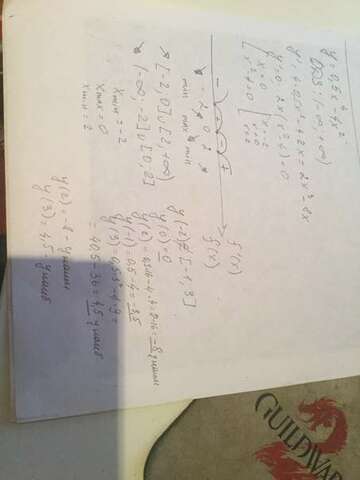 y = 0,5x⁴-4x²
D(y): (-∞; +∞)
y' = 4·0,5x³-4·2x = 2x³-8x
y'=0; 2x(x²-4)=0
x=0
x²-4=0
x=-2
x=0
x=2
- + - + f'(x)
-2 0 2 f(x)
min max min
↗ [-2,0]∪[2,+∞)
↘ (-∞,-2]∪[0,2]
xmin = -2
xmax = 0
xmin = 2
[-1,3]
y(0)=0
y(2)=0,5·16-4·4=8-16=-8 yнаим
y(-1)=0,5-4=-3,5
y(3)=0,5·3⁴-4·9=
=40,5-36=4,5 yнаиб
y(2)=-8-yнаим
y(3)=4,5-yнаиб
GUILDWAR